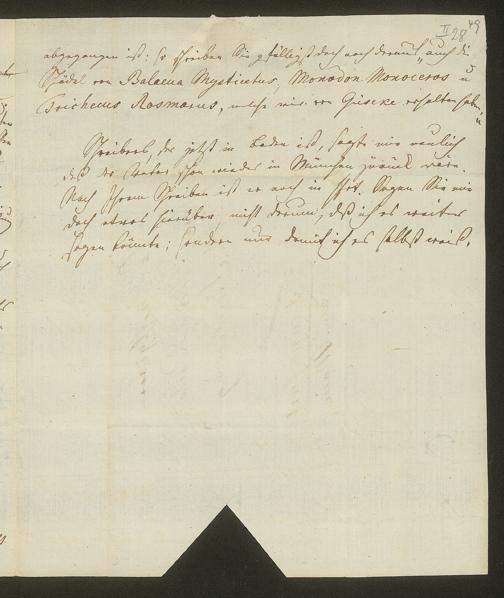 49
II 28
abgegangen ist: so schreiben Sie gefälligst doch noch darauf „auch die
Schädel von Balaena Mysticetus, Monodon Monoceros u
Trichecus Rosmarus, welche wir von Giseke erhalten haben."
Schreibers, der jetzt in Baden ist, sagte mir neulich
daß der schon wieder in München zurück wäre.
Nach Ihrem Schreiben ist er noch in Sagen Sie mir
doch etwas hierüber, nicht darum, daß ich es weiter
sagen könnte; sondern nur damit ich es selbst weiß.